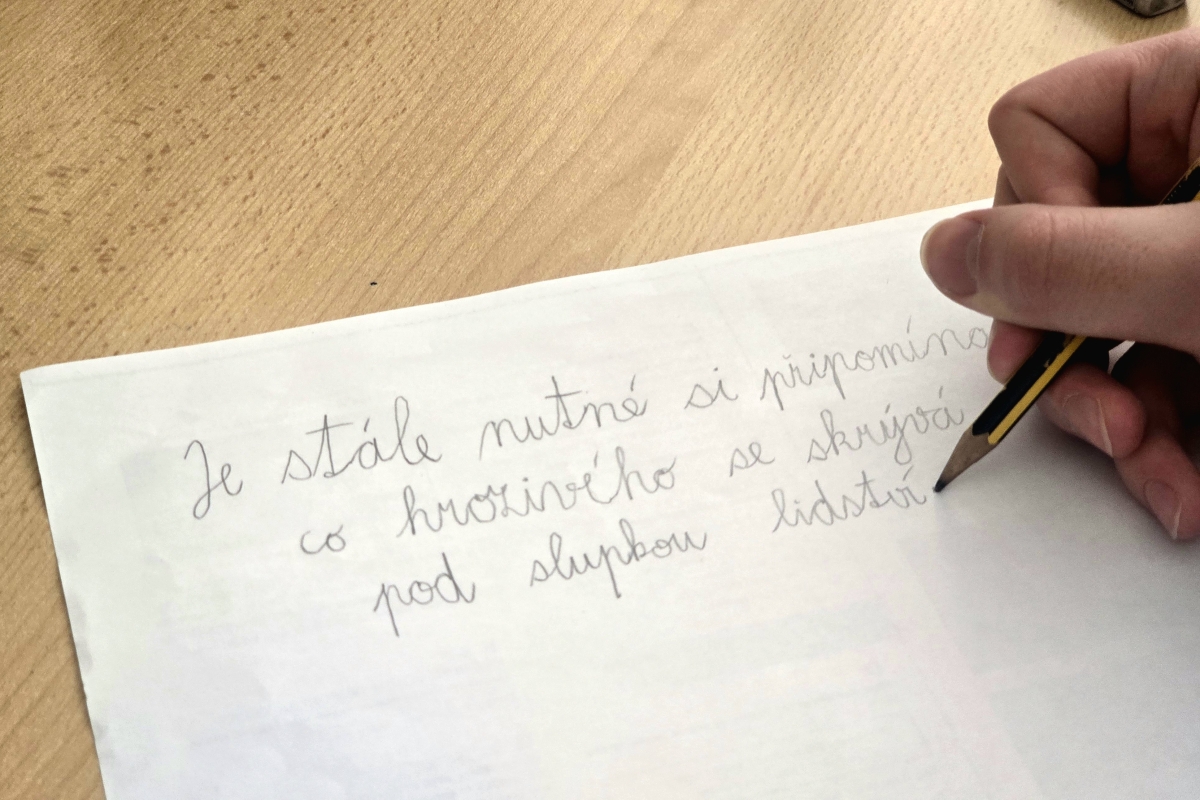 Je stále nutné si
co hrozivého se skrývá
pod slupkou lidství